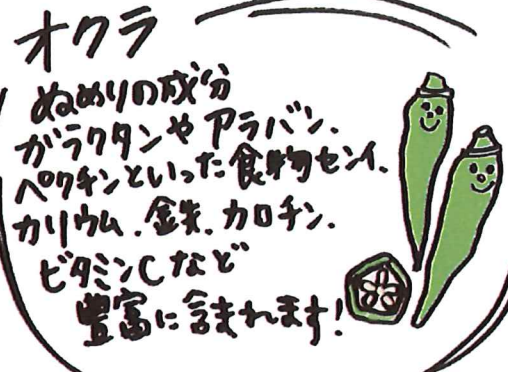 オクラ
ぬめりの成分
ガラクタンや アラバン、
ペクチンといった食物センイ、
カリウム、鉄、カロチン、
ビタミンCなど
豊富に含まれます!